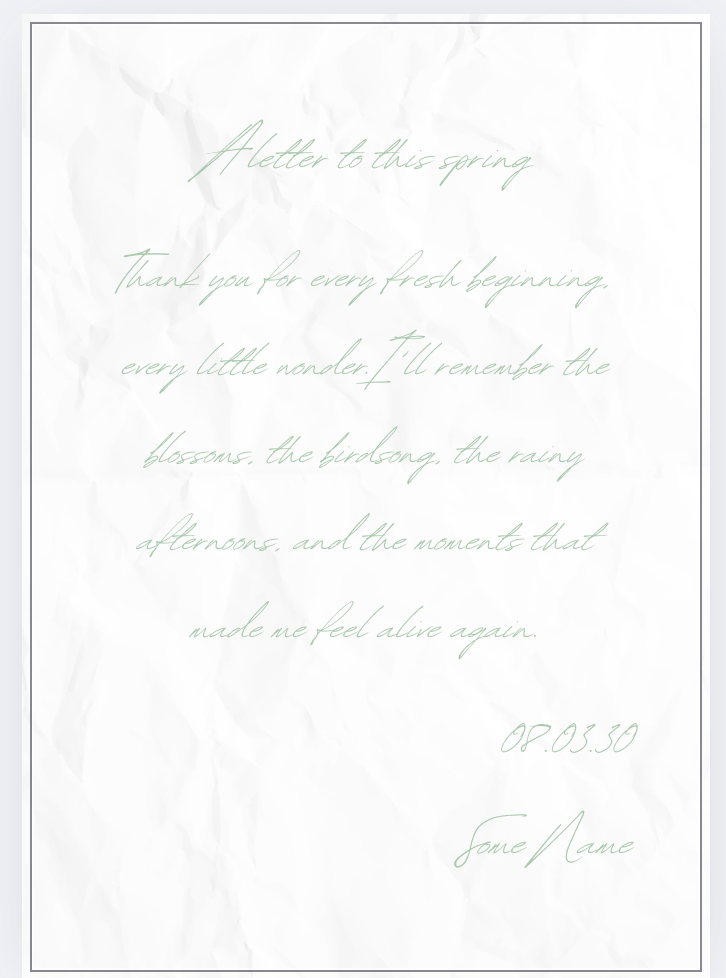 A letter to this spring
Thank you for every fresh beginning,
every little wonder. I'll remember the
blossoms, the birdsong, the rainy
afternoons, and the moments that
made me feel alive again.
08.03.30
Some Name